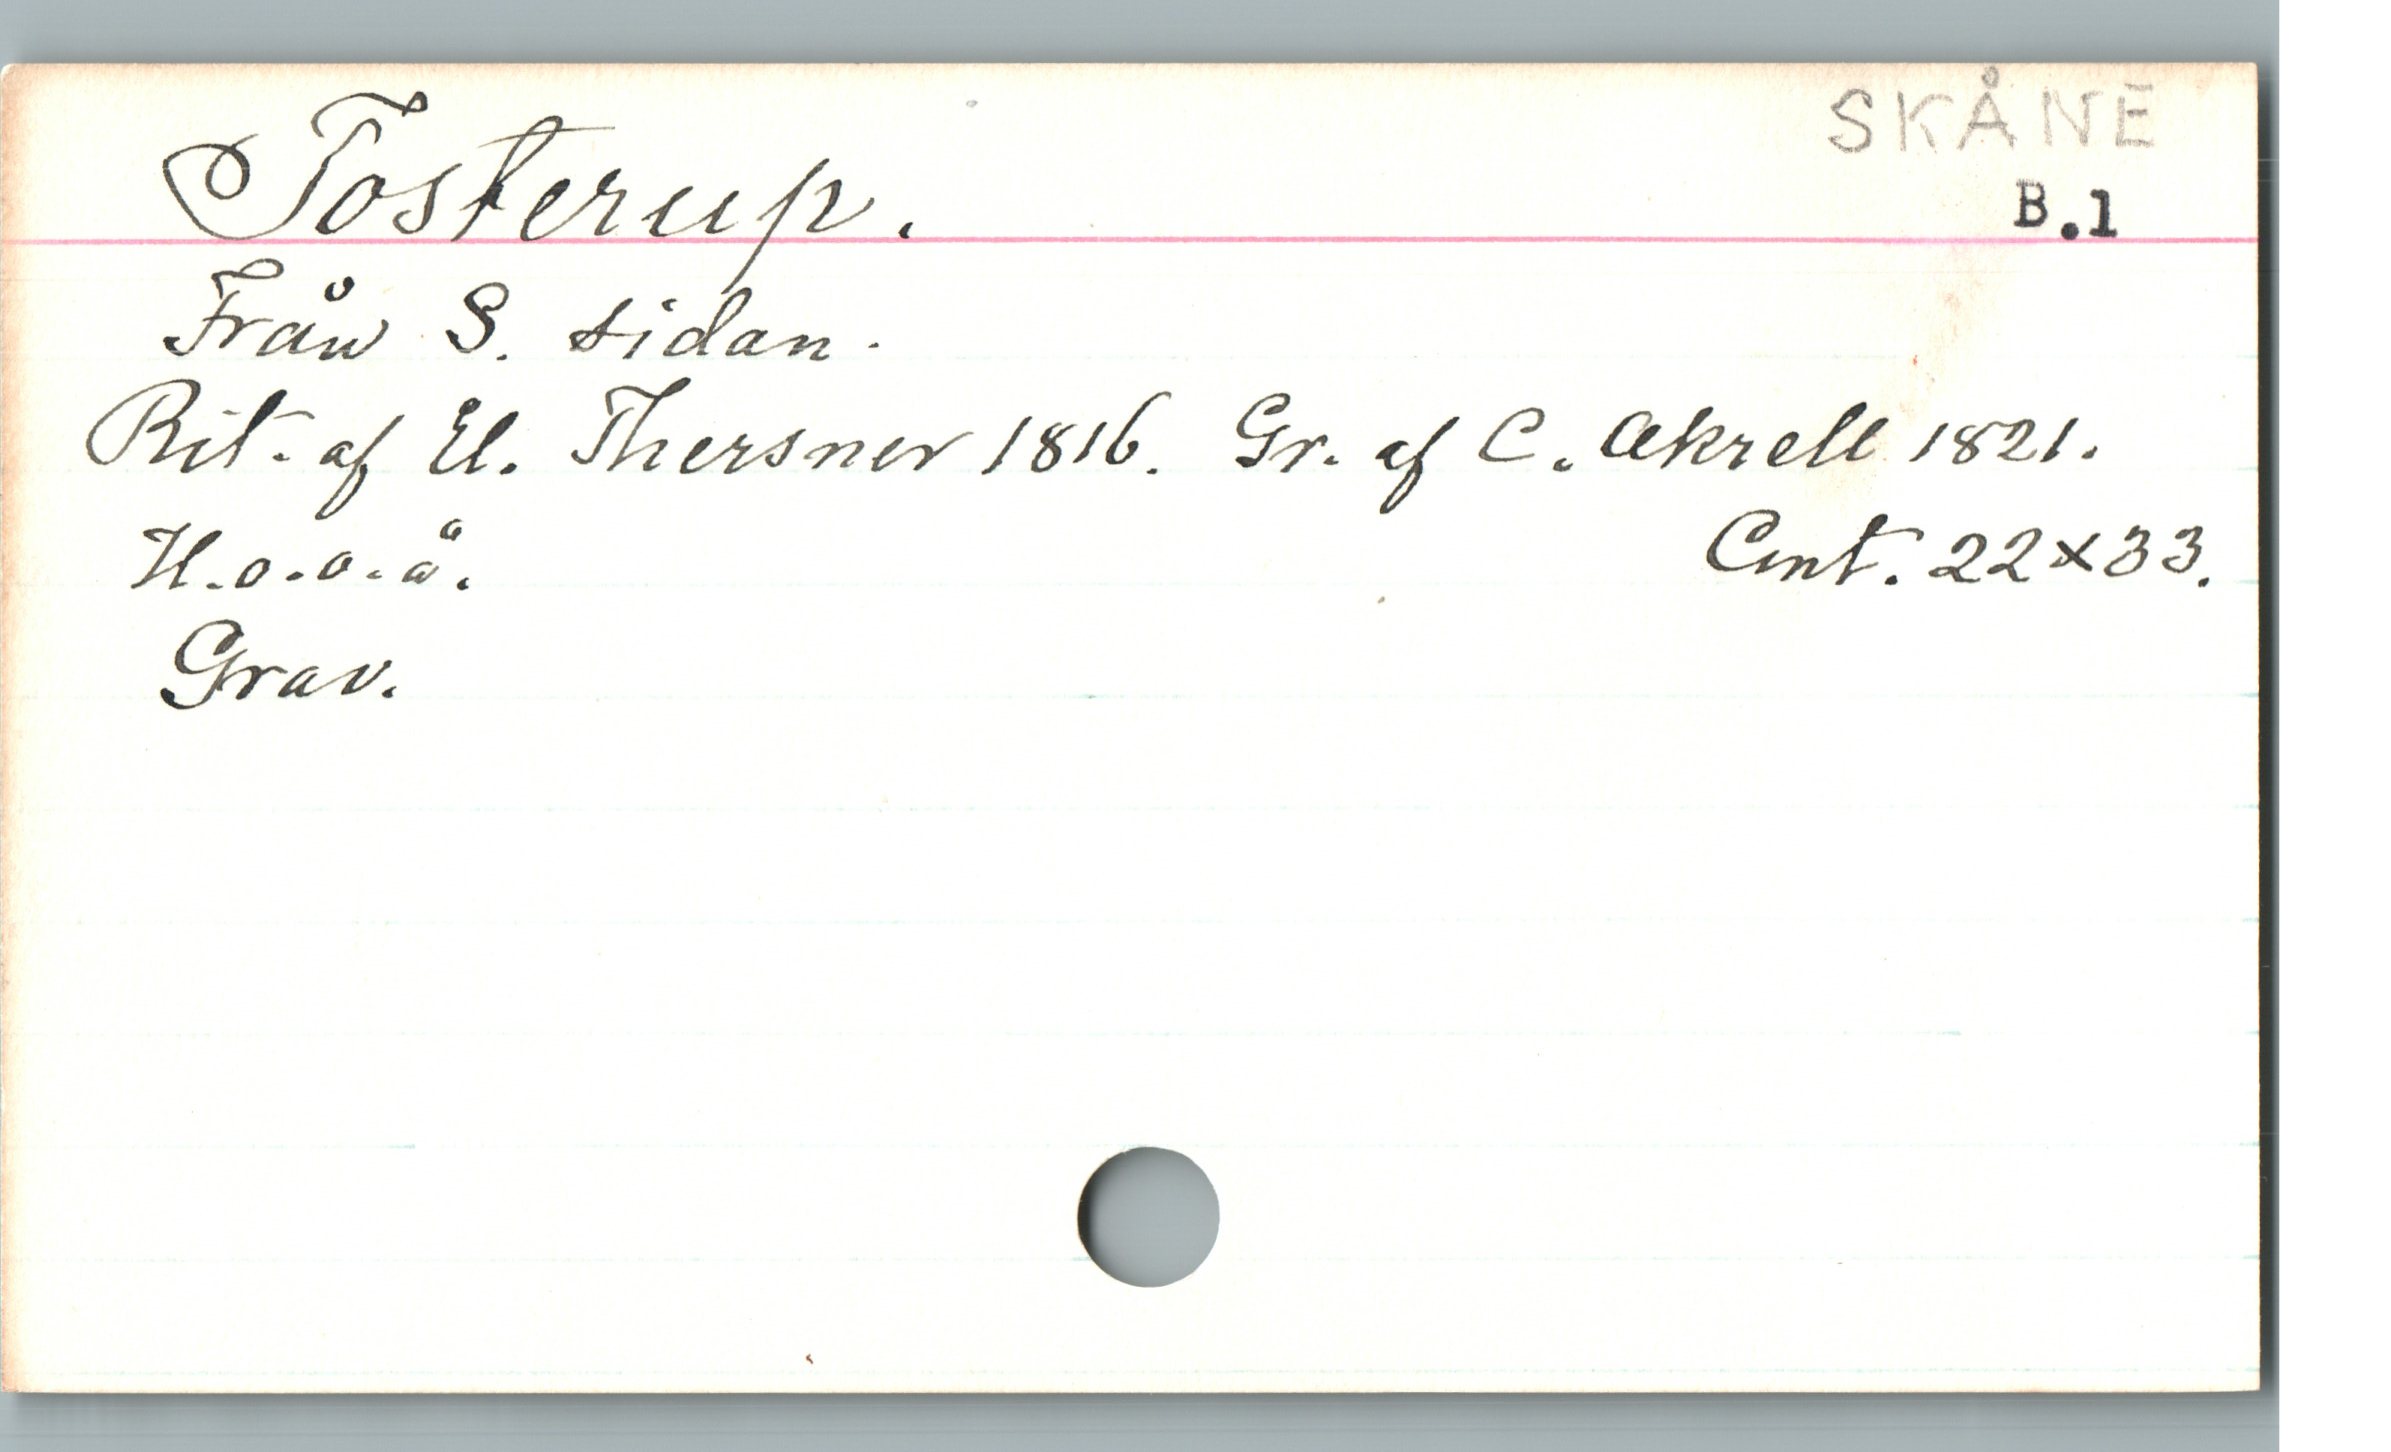 SKÅNE
Tosterup.
B.1
Från S. sidan.
Rit. af Ul. Thersner 1816. Gr. af C. Akrell 1821.
H.o.o.å. Cmt. 22×33.
Grav.